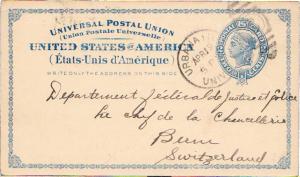 UNIVERSAL POSTAL UNION
(Union Postale Universelle)
UNITED STATES OF AMERICA
(États-Unis d'Amérique)
WRITE ONLY THE ADDRESS ON THIS SIDE
URBANA
APR
Departement fédéral de Justice et police
le chef de la Chancellerie
Bern
Switzerland